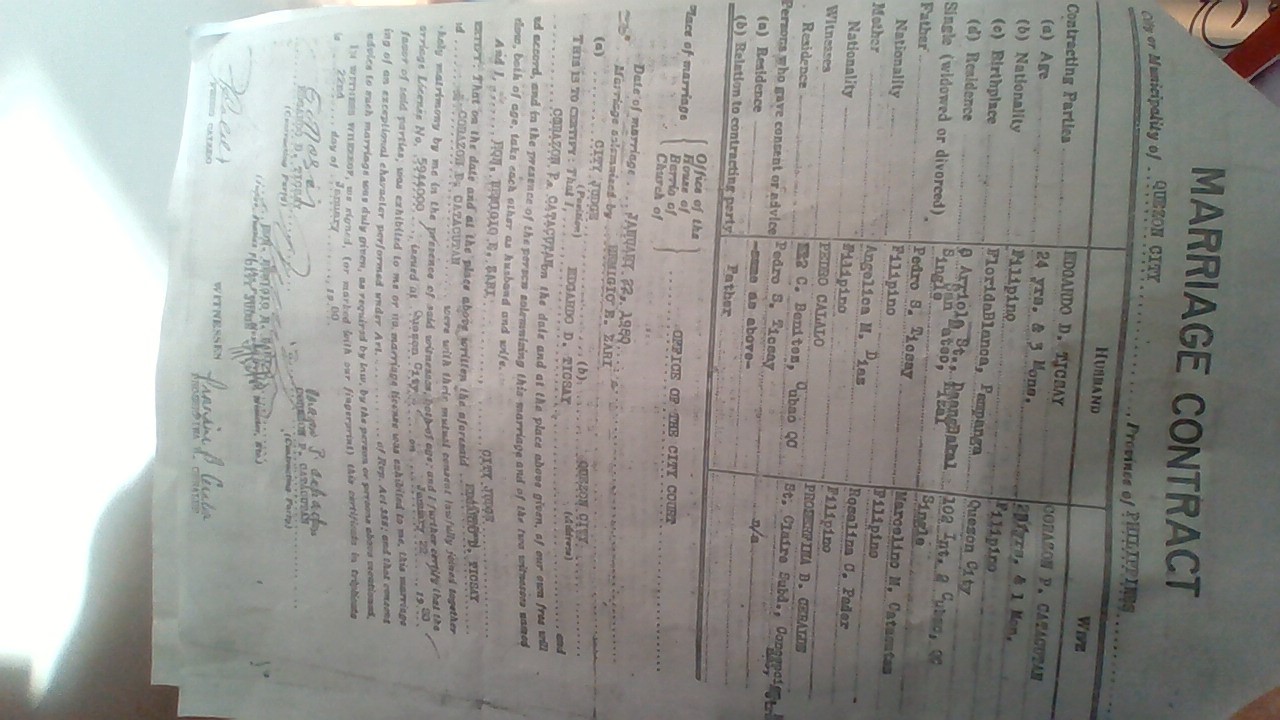 MARRIAGE CONTRACT
City or Municipality of QUEZON CITY, Province of PHILIPPINES
HUSBAND WIFE
Contracting Parties EDGARDO D. TICSAY CORAZON P. CATACUTAN
(a) Age 24 yrs. & 3 Mons. & 1 Mon.
(b) Nationality Filipino Filipino
(c) Birthplace FloridaBlanca, Pampanga Quezon City
(d) Residence St., San Mateo, Rizal 102 Int. 2 Cubao, QC
Single (widowed or divorced) Single Single
Father Pedro S. Ticsay Marcelino M. Catacutan
Nationality Filipino Filipino
Mother Angelica M. Dias Rosalina C. Pader
Nationality Filipino Filipino
Witnesses PEDRO CALALO
Residence C. Benitez, Cubao QC St. Claire Subd.,
Persons who gave consent or advice Pedro S. Ticsay n/a
(a) Residence -same as above-
(b) Relation to contracting party Father
Place of marriage { Office of the House of Barrio of Church of } OFFICE OF THE CITY COURT
Date of marriage JANUARY 22, 1980
Marriage solemnized by EMIGIO E. ZARI
(a) CITY JUDGE (b) QUEZON CITY
(Position) (Address)
THIS IS TO CERTIFY: That I, EDGARDO D. TICSAY and
CORAZON P. CATACUTAN on the date and at the place above given, of our own free will
and accord, and in the presence of the person solemnizing this marriage and of the two witnesses named
below, both of age, take each other as husband and wife.
And I, HON. EMIGIO E. ZARI CITY JUDGE
CERTIFY: That on the date and at the place above written the aforesaid EDGARDO D. TICSAY
and CORAZON P. CATACUTAN were with their mutual consent lawfully joined together
in holy matrimony by me in the presence of said witnesses, both of age; and I further certify that the
Marriage License No. 5944000 issued at Quezon City on January 22 1980
in favor of said parties, was exhibited to me or no marriage license was exhibited to me, this marriage
being of an exceptional character performed under Art. of Rep. Act 386; and that consent
or advice to such marriage was duly given, as required by law, by the person or persons above mentioned.
IN WITNESS WHEREOF, we signed (or marked with our fingerprint) this certificate in triplicate
this 22nd day of January 1980
EDGARDO D. TICSAY CORAZON P. CATACUTAN
(Contracting Party) (Contracting Party)
HON. EMIGIO E. ZARI
WITNESSES
PEDRO CALALO